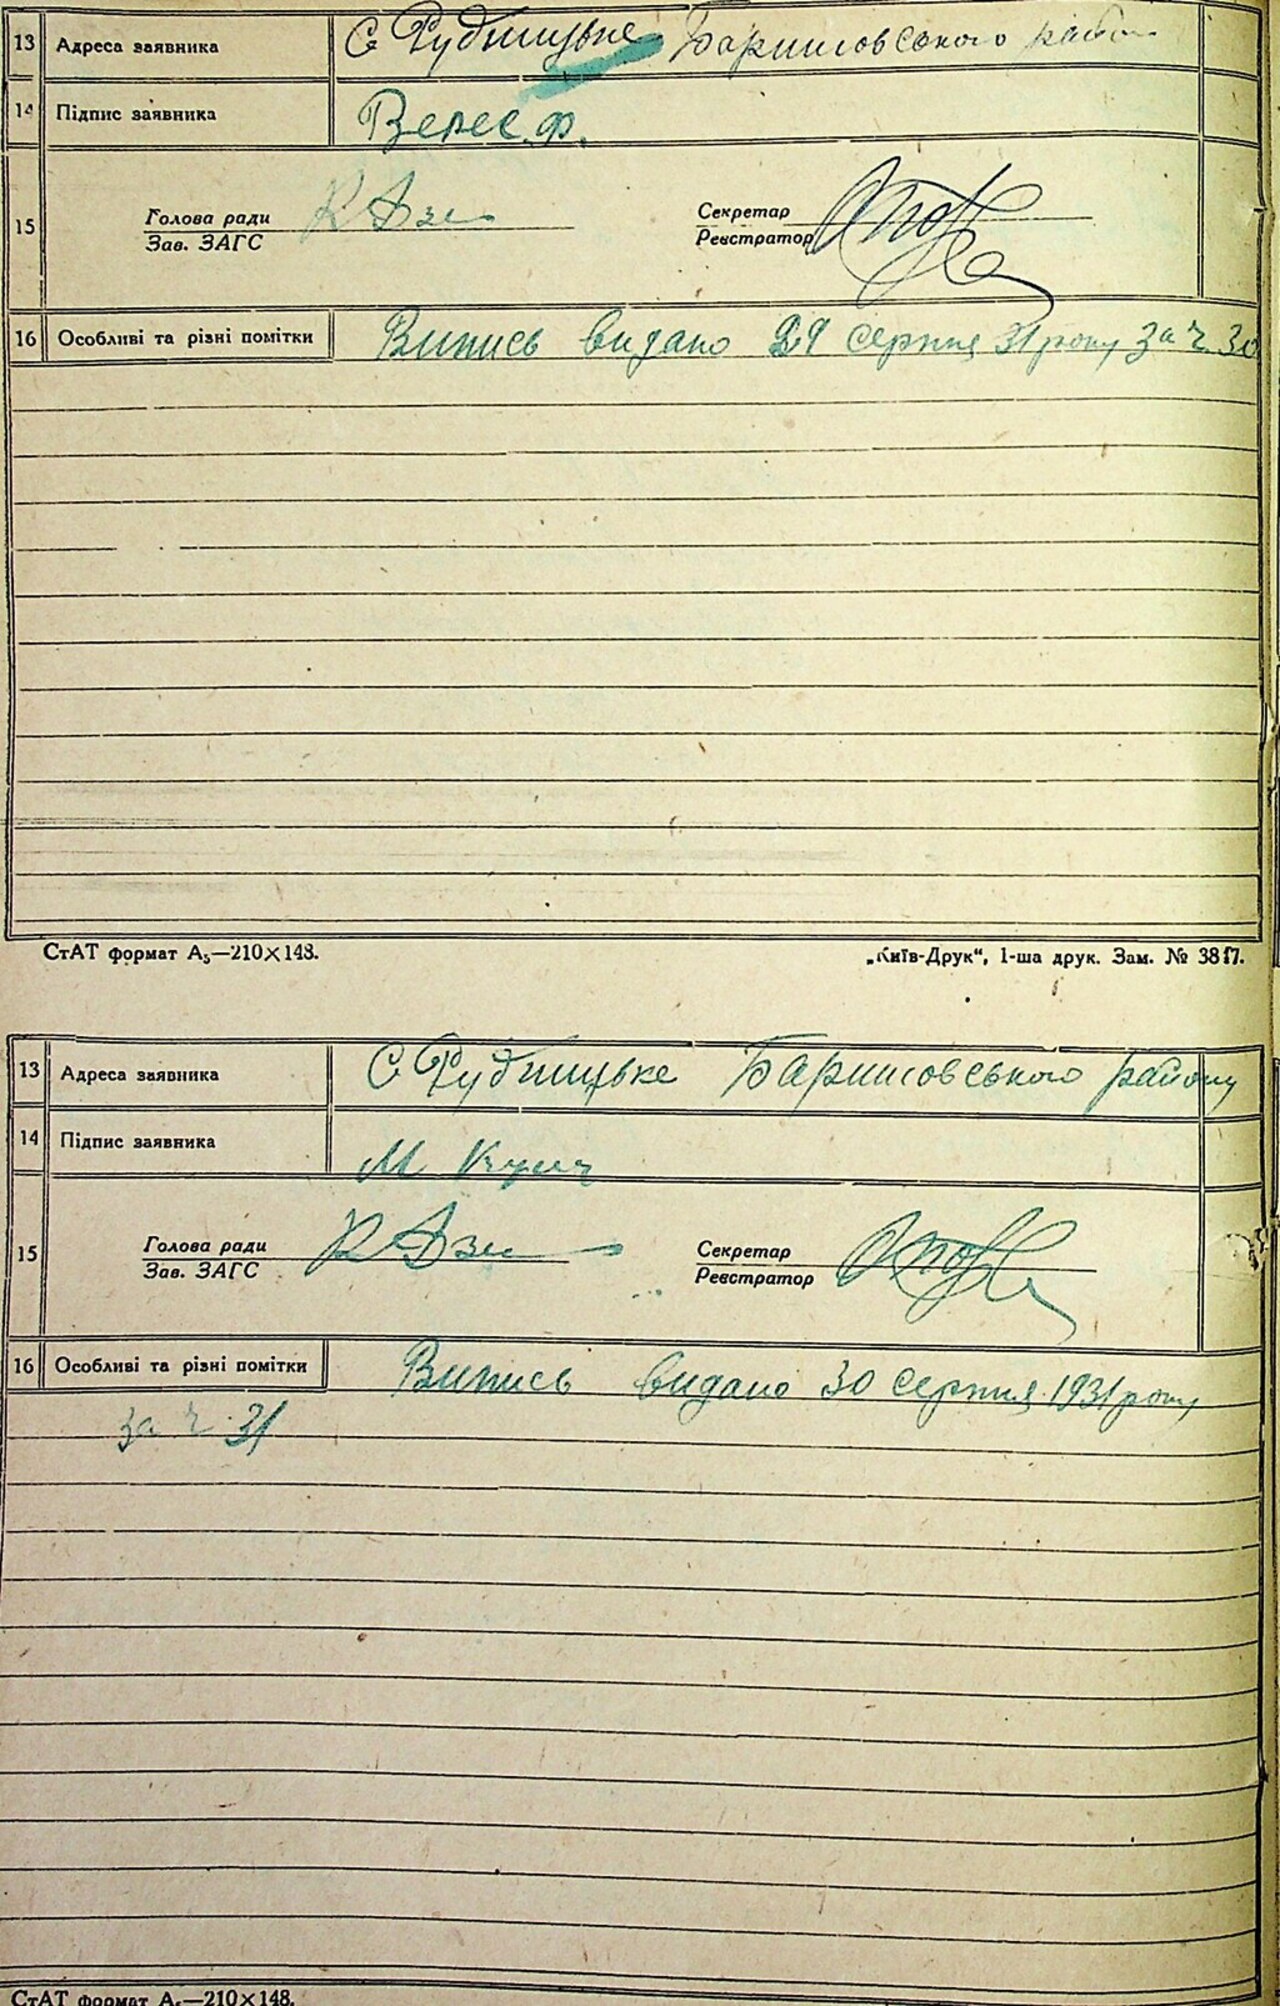 13 Адреса заявника С Рудницьке Баришовського району
14 Підпис заявника Верес. Ф.
15 Голова ради Секретар
Зав. ЗАГС Реєстратор
16 Особливі та різні помітки Випись видано 29 серпня 31 року за ч. 30
СтАТ формат А5—210×148. „Київ-Друк“, 1-ша друк. Зам. № 3817.
13 Адреса заявника С Рудницьке Баришовського району
14 Підпис заявника М Куич
15 Голова ради Секретар
Зав. ЗАГС Реєстратор
16 Особливі та різні помітки Випись видано 30 серпня 1931 року
за ч 31
СтАТ формат А5—210×148.